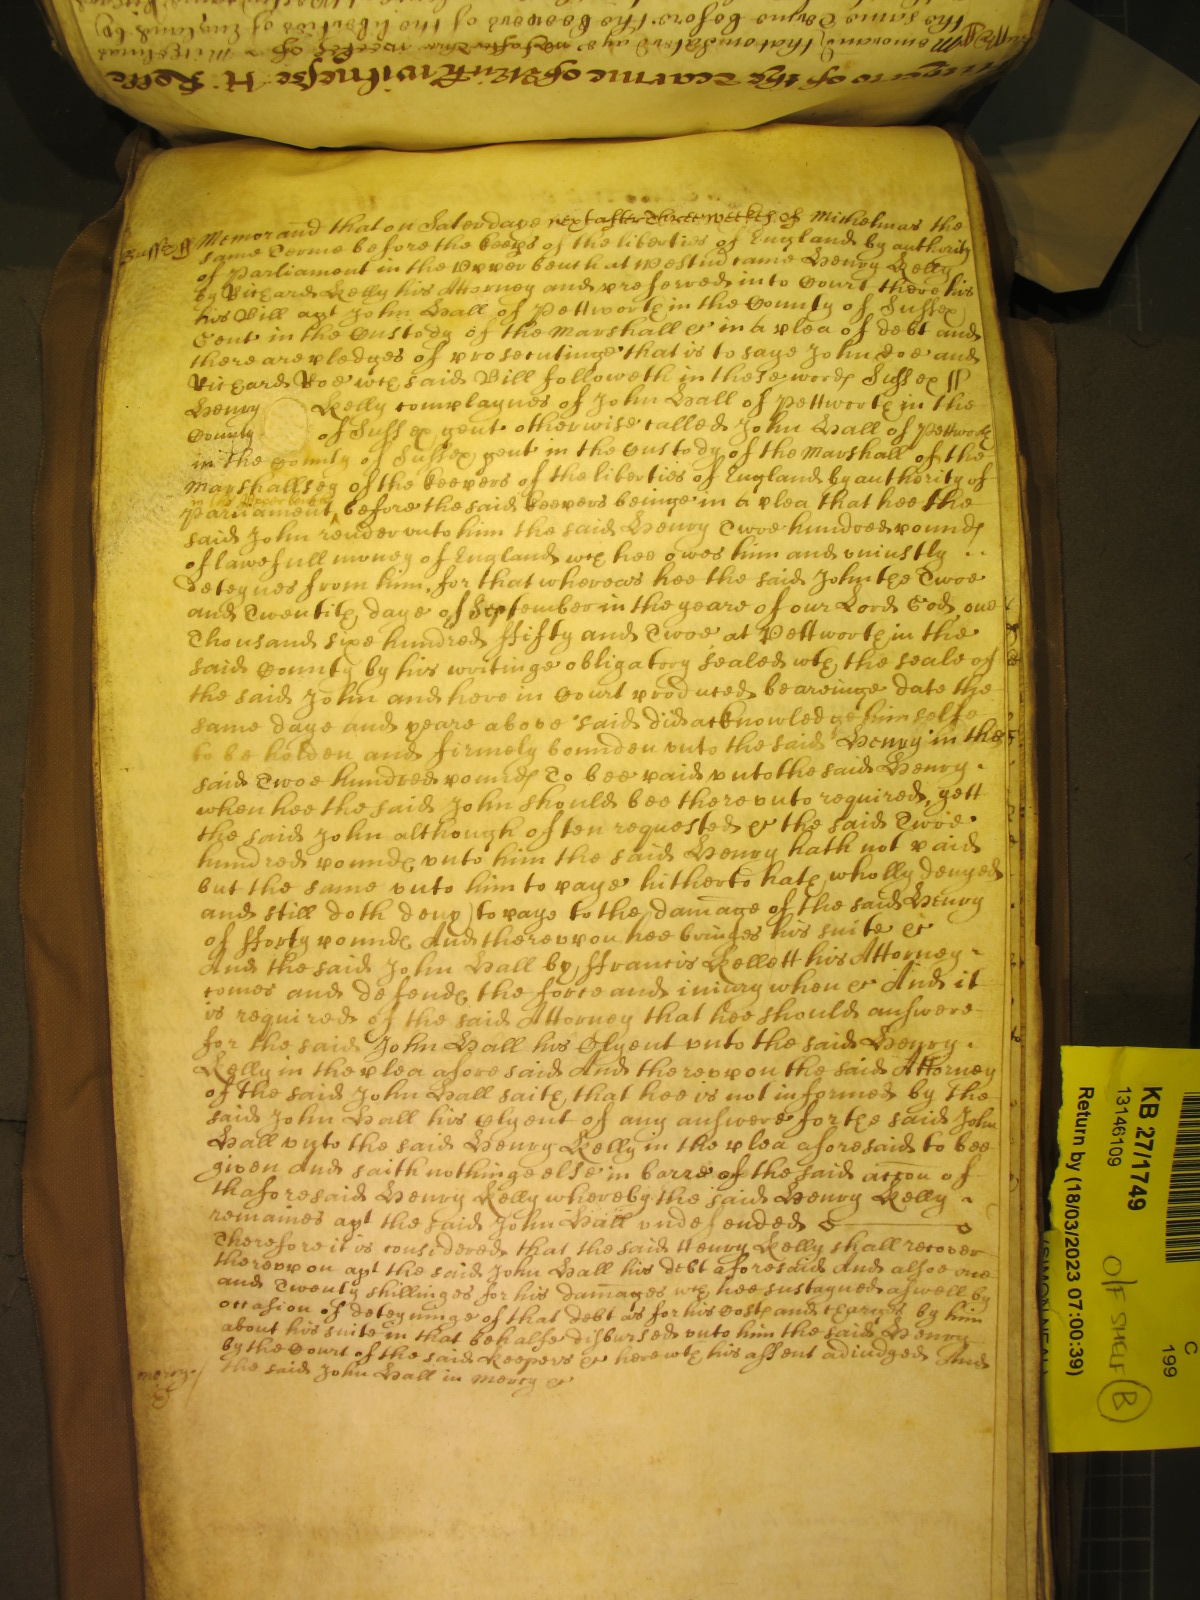 Memorand that on Saterdaye next after three weekes of Michelmas the
same Terme before the keeps of the liberties of England by authority
of Parliament in the Upper bench at Westm came Henry Kelly
by Richard Kelly his Attorney and preferred into Court there his
his Bill agt John Hall of Pettworth in the County of Sussex
Gent in the Custody of the Marshall &c in a plea of debt and
there are pledges of prosecutinge that is to saye John Doe and
Richard Roe wch said Bill followeth in these words Sussex ss
Henry Kelly complaynes of John Hall of Pettworth in the
County of Sussex gent otherwise called John Hall of Pettworth
in the County of Sussex gent in the Custody of the Marshall of the
Marshallsey of the keepers of the liberties of England by authority of
Parliament before the said keepers beinge in a plea that hee the
said John render unto him the said Henry Twoe hundred pounds
of lawefull money of England wch hee owes him and uniustly
deteynes from him, for that whereas hee the said John the Twoe
and Twentith daye of September in the yeare of our Lord God one
Thousand sixe hundred ffifty and Twoe at Pettworth in the
said County by his writinge obligatory sealed wth the seale of
the said John and here in Court produced beareinge date the
same daye and yeare above said did acknowledge himselfe
to be holden and firmely bounden unto the said Henry in the
said Twoe hundred pounds To bee paid unto the said Henry
when hee the said John should bee thereunto required, yett
the said John although often requested &c the said Twoe
hundred pounds unto him the said Henry hath not paid
but the same unto him to paye hitherto hath wholly denyed
and still doth deny to paye to the damage of the said Henry
of fforty pounds And thereupon hee bringes his suite &c
And the said John Hall by ffrancis Kellett his Attorney
comes and defends the force and iniury when &c And it
is required of the said Attorney that hee should answere
for the said John Hall his Clyent unto the said Henry
Kelly in the plea aforesaid And thereupon the said Attorney
of the said John Hall saith that hee is not informed by the
said John Hall his clyent of any answere for the said John
Hall unto the said Henry Kelly in the plea aforesaid to bee
given And saith nothinge else in barre of the said accon of
thaforesaid Henry Kelly whereby the said Henry Kelly
remaines agt the said John Hall undefended
Therefore it is considered that the said Henry Kelly shall recover
thereupon agt the said John Hall his debt aforesaid And alsoe one
and Twenty shillinges for his damages wch hee sustayned aswell by
occasion of deteyninge of that debt as for his Costs and charges by him
about his suite in that behalfe disbursed unto him the said Henry
by the Court of the said keepers &c here wth his assent adiudged And
the said John Hall in mercy &c
KB 27/1749
13146109
Return by (18/03/2023 07:00:39)
O/F SHELF B
C
199